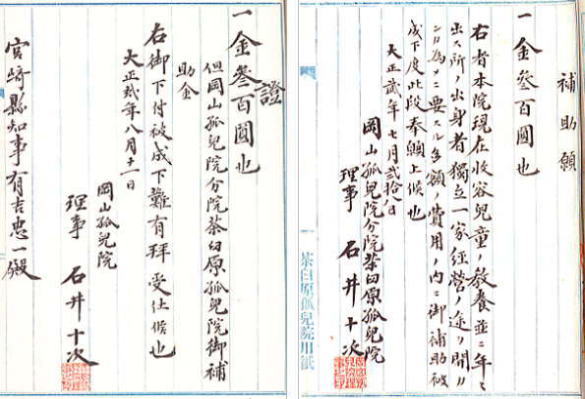 補助願
一金參百圓也
右者本院現在收容兒童ノ教養並ニ年々
出ス所ノ出身者獨立一家經營ノ途ノ開ク
ニ為メニ要スル多額ノ費用ノ内ニ御補助被
成下度此段奉願上候也
大正貳年七月貳拾八日
岡山孤兒院分院茶臼原孤兒院
理事 石井十次
茶臼原孤兒院用紙
證
一金參百圓也
但岡山孤兒院分院茶臼原孤兒院御補
助金
右御下付被成下難有拜受仕候也
大正貳年八月十一日
岡山孤兒院
理事 石井十次
宮崎縣知事有吉忠一殿